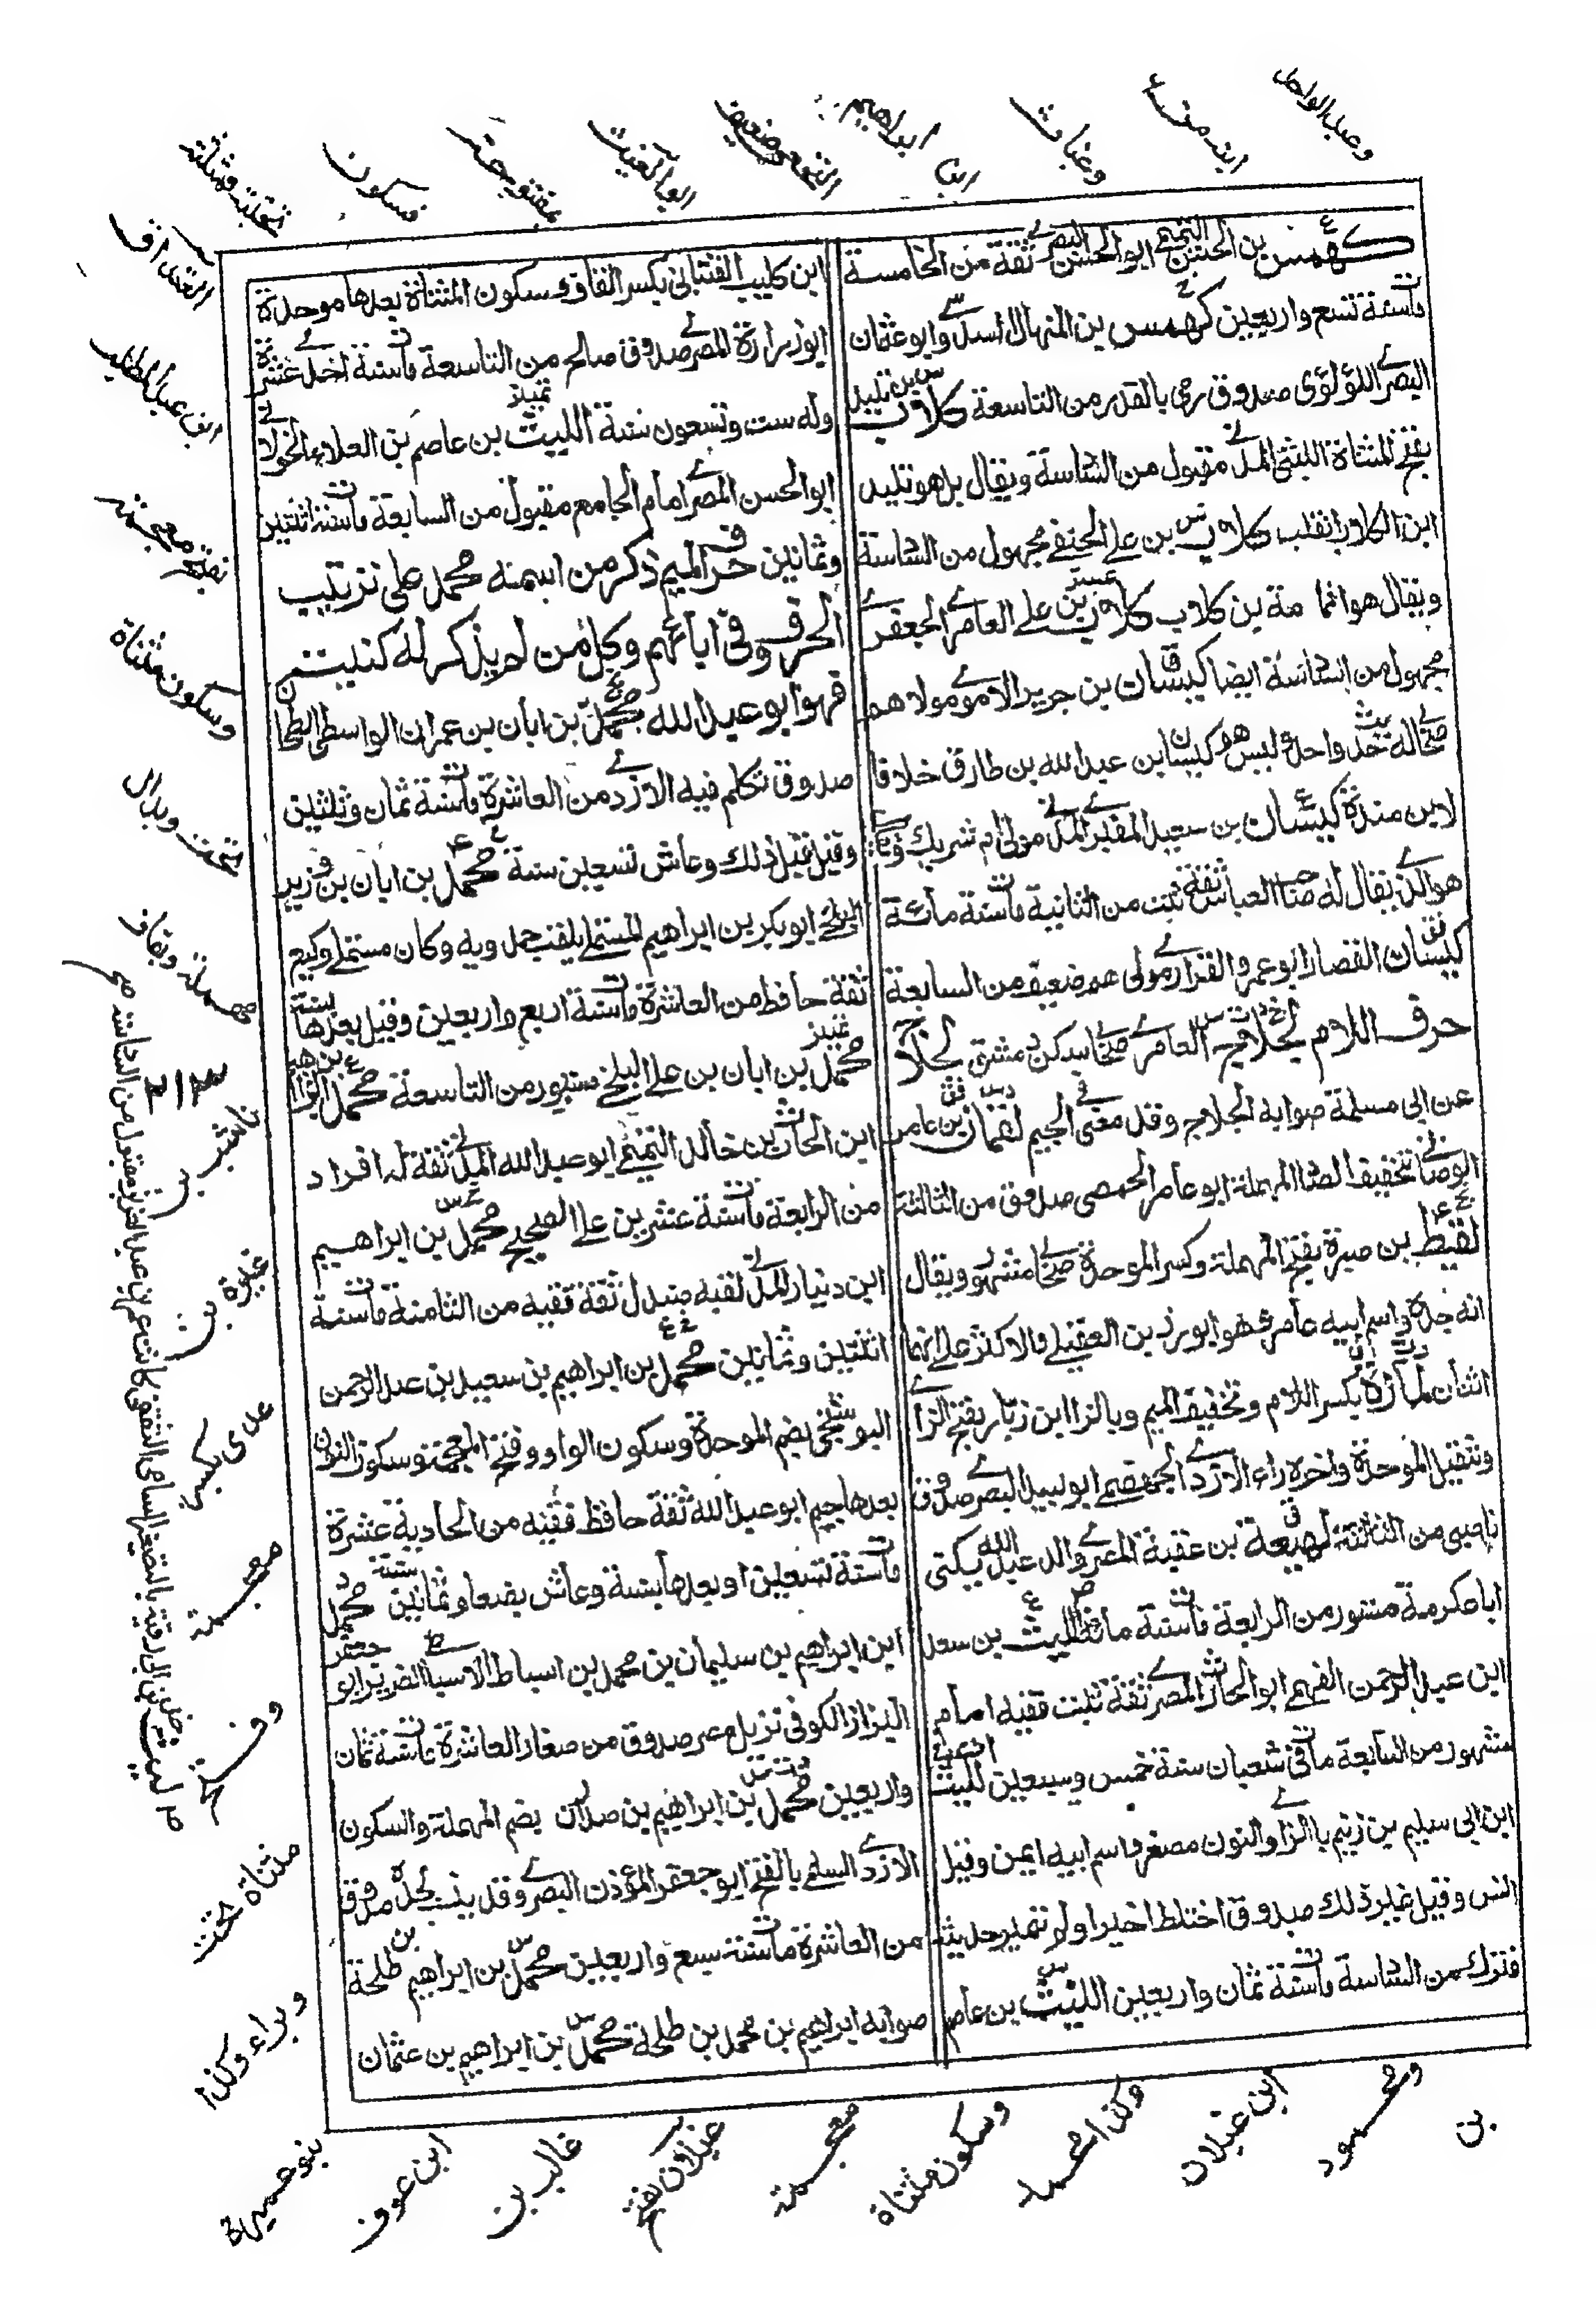 كهمس بن الحسن التميمي ابو الحسن البصري ثقة من الخامسة
مات سنة تسع واربعين كهمس بن المنهال السدوسي ابو عثمان
البصري اللؤلؤى صدوق رمي بالقدر من التاسعة كلاب بن تليد
بفتح المثناة الليثي المدني مقبول من السادسة ويقال بل هو تليد
ابن الكلاب انقلب كلاب بن علي الحنفي مجهول من السادسة
ويقال هو انما مة بن كلاب كلاب بن علي العامري الجعفري
مجهول من السادسة ايضا كيسان بن جرير الاموي مولاهم
صحابي له حديث واحد ليس هو كيسان ابن عبد الله بن طارق خلافا
لابن مندة كيسان بن سعيد المقبري المدني مولى ام شريك ويقال
هو الذي يقال له صاحب العباس ثقة ثبت من الثانية مات سنة مائة
كيسان القصار ابو عمرو الفزاري مولى هم ضعيف من السابعة
حرف اللام لجلاج العامري صحابي سكن دمشق لجلاج
عن ابي مسلمة صوابه الجلاج وقد مضى في الجيم لقمان بن عامر
الوصابي بتخفيف الصاد المهملة ابو عامر الحمصي صدوق من الثالثة
لقيط بن صبرة بفتح المهملة وكسر الموحدة صحابي مشهور ويقال
انه جده واسم ابيه عامر فهو ابو رزين العقيلي والاكثر على انهما
اثنان لمازة بكسر اللام وتخفيف الميم وبالزا ابن زبار بفتح الزا
وتثقيل الموحدة واخره راء الازدي الجهضمي ابو لبيد البصري صدوق
ناصبي من الثالثة لهيعة بن عقبة المصري والد عبد الله يكنى
ابا عكرمة مستور من الرابعة مات سنة مائة الليث بن سعد
ابن عبد الرحمن الفهمي ابو الحارث المصري ثقة ثبت فقيه امام
مشهور من السابعة مات في شعبان سنة خمس وسبعين الليث
ابن ابي سليم بن زنيم بالزا والنون مصغر واسم ابيه ايمن وقيل
انس وقيل غير ذلك صدوق اختلط اخيرا ولم تتميز حديثه
فترك من السادسة مات سنة ثمان واربعين الليث بن عاصم
ابن كليب القتباني بكسر القاف وسكون المثناة بعدها موحدة
ابو زرارة المصري صدوق صالح من التاسعة مات سنة احدى عشرة
وله ست وتسعون سنة الليث بن عاصم بن العلاء الخولاني
ابو الحسن المصري امام الجامع مقبول من السابعة مات سنة اثنتين
وثمانين حرف الميم ذكر من اسمه محمد على ترتيب
الحروف في ابائهم وكل من لم يذكر له كنيت
فهو ابو عبد الله محمد بن ابان بن عمران الواسطي الطحان
صدوق تكلم فيه الازدي من العاشرة مات سنة ثمان وثلثين
وقيل قبل ذلك وعاش تسعين سنة محمد بن ابان بن وزير
البلخي ابو بكر بن ابراهيم المستملي يلقب حمدويه وكان مستملي وكيع
ثقة حافظ من العاشرة مات سنة اربع واربعين وقيل بعدها بسنة
محمد بن ابان بن علي البلخي مستور من التاسعة محمد بن ابراهيم
ابن الحارث بن خالد التيمي ابو عبد الله المدني ثقة له افراد
من الرابعة مات سنة عشرين على الصحيح محمد بن ابراهيم
ابن دينار المدني لقبه صندل ثقة فقيه من الثامنة مات سنة
اثنتين وثمانين محمد بن ابراهيم بن سعيد بن عبد الرحمن
البوشنجي بضم الموحدة وسكون الواو وفتح المعجمة وسكون النون
بعدها جيم ابو عبد الله ثقة حافظ فقيه من الحادية عشرة
مات سنة تسعين او بعدها بسنة وعاش بضعا وثمانين سنة محمد
ابن ابراهيم بن سليمان بن محمد بن اسباط الاسباطي الضرير ابو جعفر
البزاز الكوفي نزيل مصر صدوق من صغار العاشرة مات سنة ثمان
واربعين محمد بن ابراهيم بن صدران بضم المهملة والسكون
الازدي السلمي بالفتح ابو جعفر المؤذن البصري وقد ينسب لجده صدوق
من العاشرة مات سنة سبع واربعين محمد بن ابراهيم بن طلحة
صوابه ابراهيم بن محمد بن طلحة محمد بن ابراهيم بن عثمان
وعبد الواحد
وعتاب
ابن ابراهيم
ابو الغيث
مفتوحة
فسكون
ابن عبد المطلب
نقطه معجمة
وسكون مثناة
تحت وبدال
مهملة وبقاف
ناشب بن
غيرة بن
عدى بكسر
معجمة
وفتحة
مثناة تحت
وبراء وكذا
بنو عميرة
ابن عوف
غالب بن
غيلان بفتح
معجمة
وسكون مثناة
وكذا احمد
ابن غيلان
ومحمود
بن